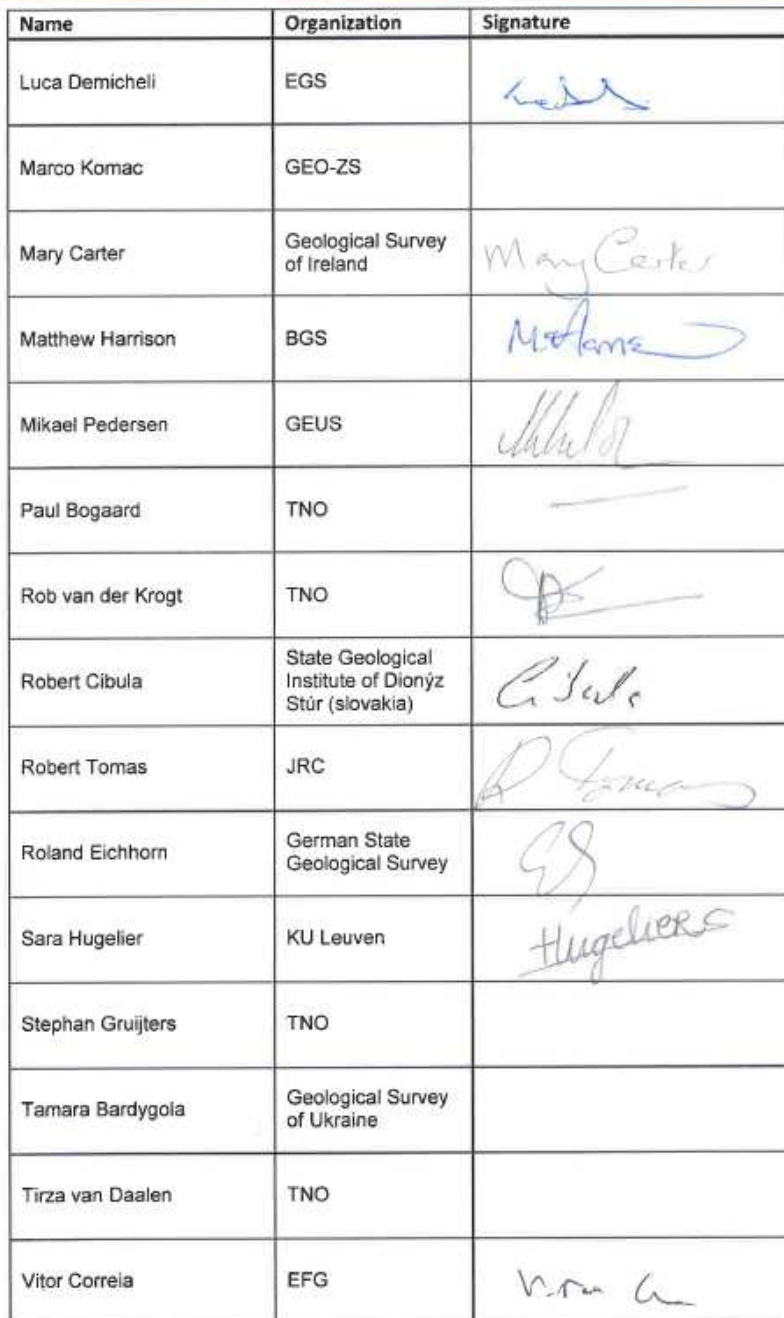 Name Organization Signature
Luca Demicheli EGS
Marco Komac GEO-ZS
Mary Carter Geological Survey of Ireland Mary Carter
Matthew Harrison BGS
Mikael Pedersen GEUS
Paul Bogaard TNO
Rob van der Krogt TNO
Robert Cibula State Geological Institute of Dionýz Stúr (slovakia)
Robert Tomas JRC
Roland Eichhorn German State Geological Survey
Sara Hugelier KU Leuven Hugeliers
Stephan Gruijters TNO
Tamara Bardygola Geological Survey of Ukraine
Tirza van Daalen TNO
Vitor Correia EFG